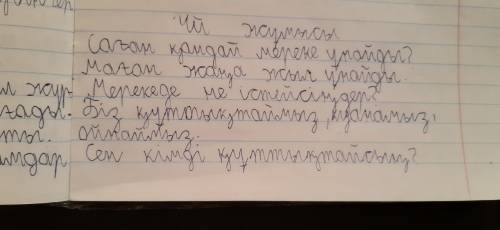 Үй жұмысы
Саған қандай мереке ұнайды?
Маған жаңа жыл ұнайды.
Мерекеде не істейсіңдер?
Біз құттықтаймыз, қуанамыз,
ойнаймыз.
Сен кімді құттықтайсың?